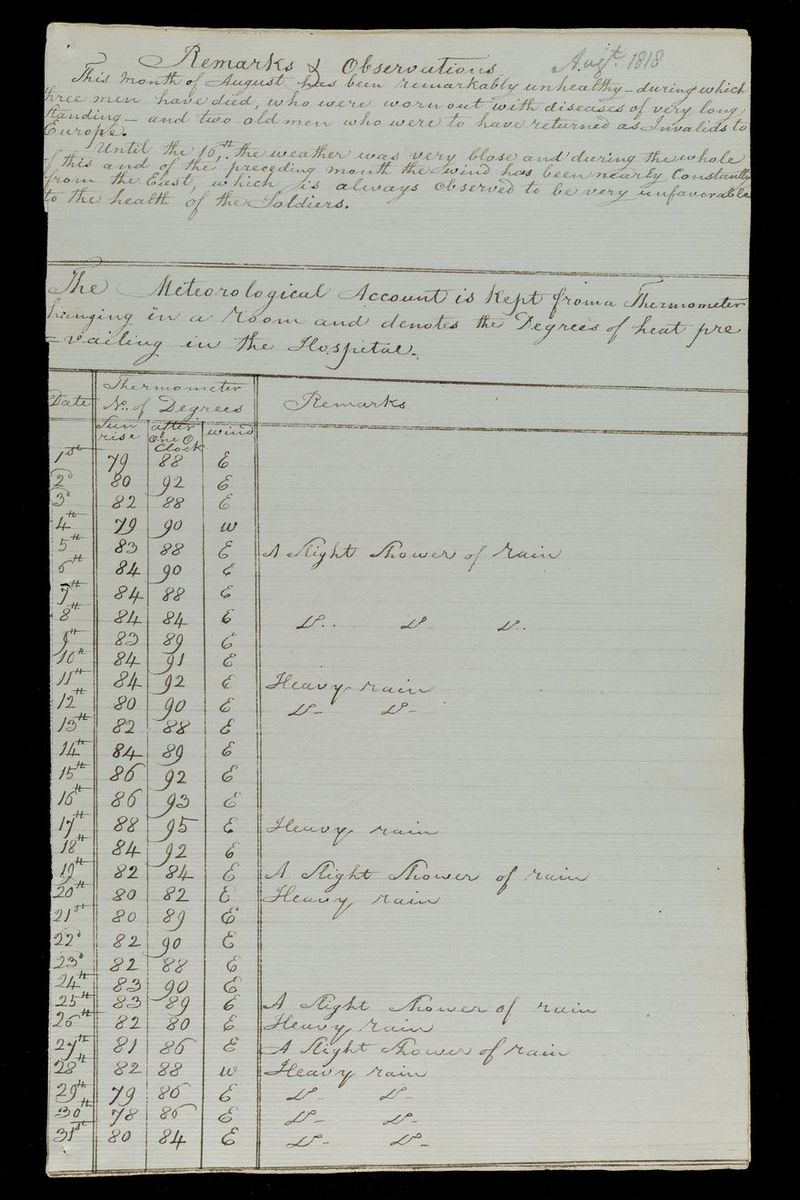 Remarks & Observations Augt. 1818
This Month of August has been remarkably unhealthy – during which
three men have died, who were worn out with diseases of very long
standing – and two old men who were to have returned as Invalids to
Europe.
Until the 16th. the weather was very Close and during the whole
of this and of the preceding month the wind has been nearly Constantly
from the East, which is always observed to be very unfavorable
to the health of the Soldiers.
The Meteorological Account is Kept from a Thermometer
hanging in a room and denotes the Degrees of heat pre
=vailing in the Hospital.
Date Thermometer Remarks
No. of Degrees
Sun rise after One O Clock wind
1st 79 88 E
2d 80 92 E
3d 82 88 E
4th 79 90 w
5th 83 88 E A Slight Shower of rain
6th 84 90 E
7th 84 88 E
8th 84 84 E Do.. Do Do..
9th 83 89 E
10th 84 91 E
11th 84 92 E Heavy rain
12th 80 90 E Do- Do-
13th 82 88 E
14th 84 89 E
15th 86 92 E
16th 86 93 E
17th 88 95 E Heavy rain
18th 84 92 E
19th 82 84 E A Slight Shower of rain
20th 80 82 E Heavy rain
21st 80 89 E
22d 82 90 E
23d 82 88 E
24th 83 90 E
25th 83 89 E A Slight Shower of rain
26th 82 80 E Heavy rain
27th 81 86 E A Slight Shower of rain
28th 82 88 w Heavy rain
29th 79 86 E Do- Do-
30th 78 86 E Do- Do-
31st 80 84 E Do- Do-